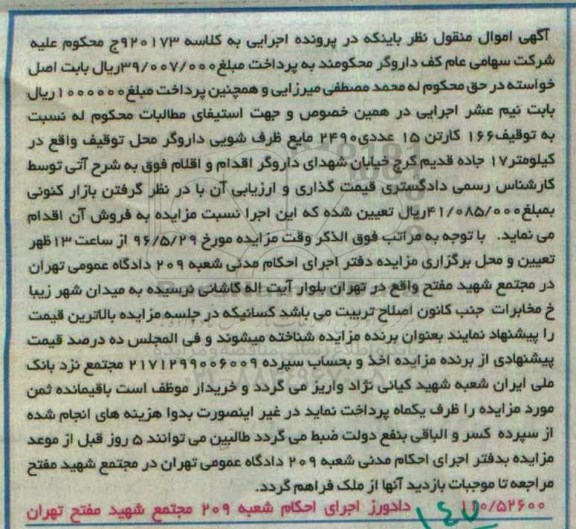 آگهی اموال منقول نظر باینکه در پرونده اجرایی به کلاسه ۹۲۰۱۷۳ج محکوم علیه
شرکت سهامی عام کف داروگر محکومند به پرداخت مبلغ۳۹/۰۰۷/۰۰۰ریال بابت اصل
خواسته در حق محکوم له محمد مصطفی میرزایی و همچنین پرداخت مبلغ۱۰۰۰۰۰۰ریال
بابت نیم عشر اجرایی در همین خصوص و جهت استیفای مطالبات محکوم له نسبت
به توقیف۱۶۶ کارتن ۱۵ عددی۲۴۹۰ مایع ظرف شویی داروگر محل توقیف واقع در
کیلومتر۱۷ جاده قدیم کرج خیابان شهدای داروگر اقدام و اقلام فوق به شرح آتی توسط
کارشناس رسمی دادگستری قیمت گذاری و ارزیابی آن با در نظر گرفتن بازار کنونی
بمبلغ۴۱/۰۸۵/۰۰۰ریال تعیین شده که این اجرا نسبت مزایده به فروش آن اقدام
می نماید. با توجه به مراتب فوق الذکر وقت مزایده مورخ ۹۶/۵/۲۹ از ساعت ۱۳ظهر
تعیین و محل برگزاری مزایده دفتر اجرای احکام مدنی شعبه ۲۰۹ دادگاه عمومی تهران
در مجتمع شهید مفتح واقع در تهران بلوار آیت اله کاشانی نرسیده به میدان شهر زیبا
خ مخابرات جنب کانون اصلاح تربیت می باشد کسانیکه در جلسه مزایده بالاترین قیمت
را پیشنهاد نمایند بعنوان برنده مزایده شناخته میشوند و فی المجلس ده درصد قیمت
پیشنهادی از برنده مزایده اخذ و بحساب سپرده ۲۱۷۱۲۹۹۰۰۶۰۰۹ مجتمع نزد بانک
ملی ایران شعبه شهید کیانی نژاد واریز می گردد و خریدار موظف است باقیمانده ثمن
مورد مزایده را ظرف یکماه پرداخت نماید در غیر اینصورت بدوا هزینه های انجام شده
از سپرده کسر و الباقی بنفع دولت ضبط می گردد طالبین می توانند ۵ روز قبل از موعد
مزایده بدفتر اجرای احکام مدنی شعبه ۲۰۹ دادگاه عمومی تهران در مجتمع شهید مفتح
مراجعه تا موجبات بازدید آنها از ملک فراهم گردد.
۱۱۰/۵۲۶۰۰ دادورز اجرای احکام شعبه ۲۰۹ مجتمع شهید مفتح تهران